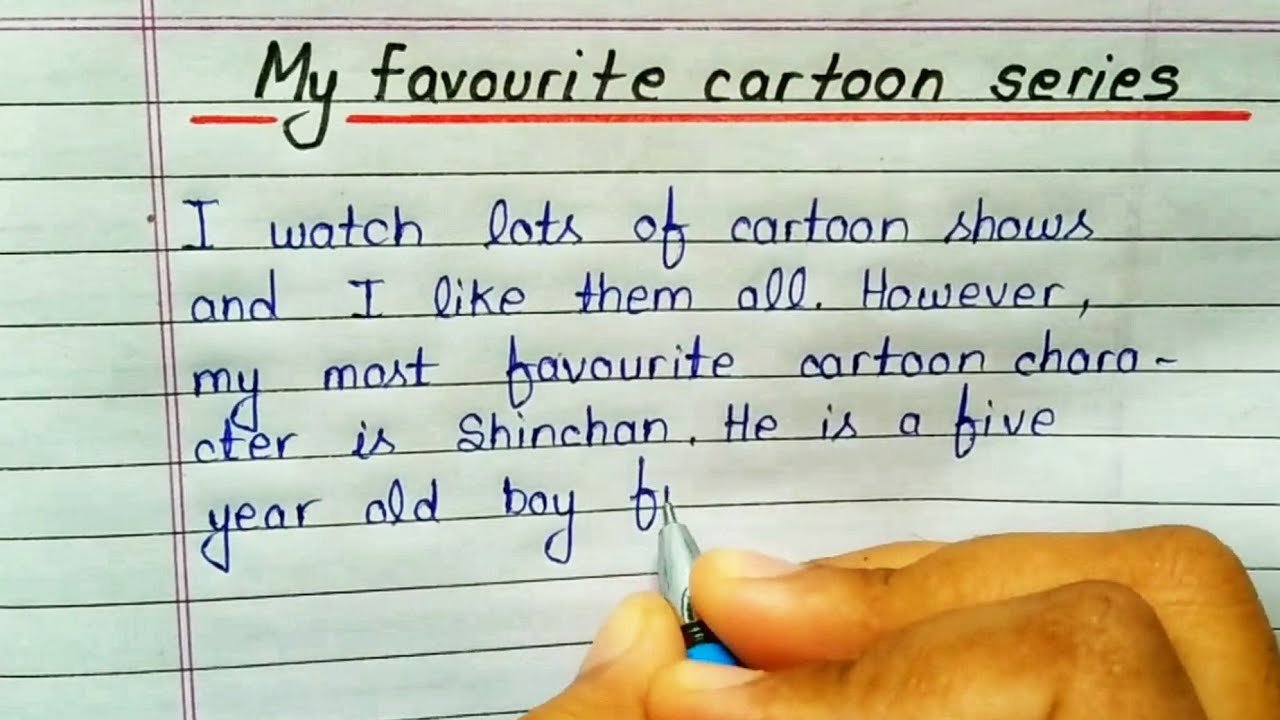 My favourite cartoon series
I watch lots of cartoon shows
and I like them all. However,
my most favourite cartoon chara-
cter is Shinchan. He is a five
year old boy